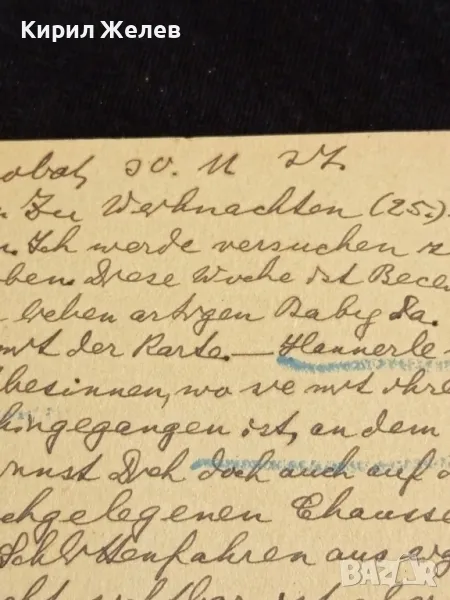 Кирил Желев
obat, 30. 11 37.
Zu Weihnachten (25.)
n. Ich werde versuchen z
ben. Diese Woche ist Bece
n lieben artigen Baby da.
mit der Karte. — Hannerle
besinnen, wo sie mit ihre
hingegangen ist, an dem
nnst Dich doch auch auf d
chgelegenen Chausse
Schlittenfahren aus
bazar